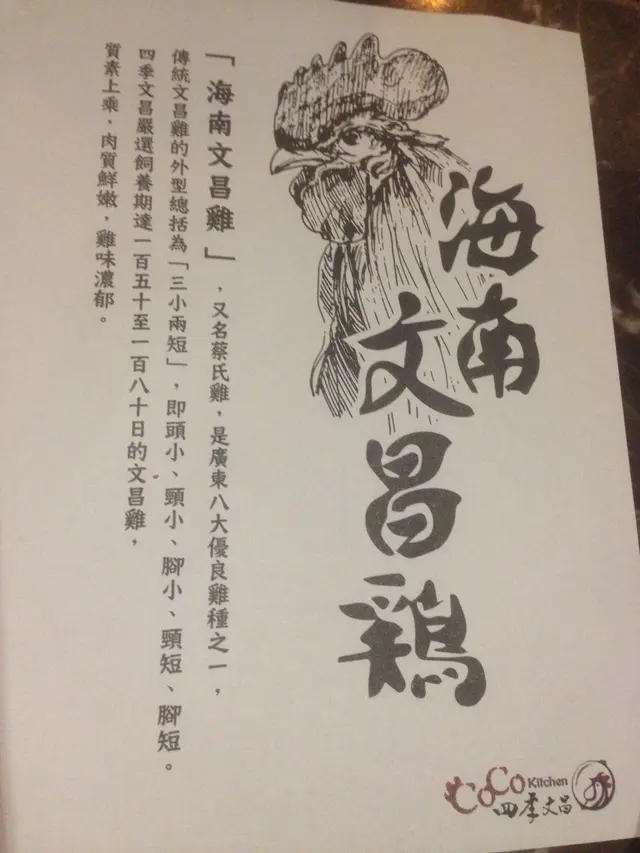 海南
文昌鷄
「海南文昌雞」，又名蔡氏雞，是廣東八大優良雞種之一，
傳統文昌雞的外型總括為「三小兩短」，即頭小、頸小、腳小、頸短、腳短。
四季文昌嚴選飼養期達一百五十至一百八十日的文昌雞，
質素上乘，肉質鮮嫩，雞味濃郁。
CoCo Kitchen
四季文昌